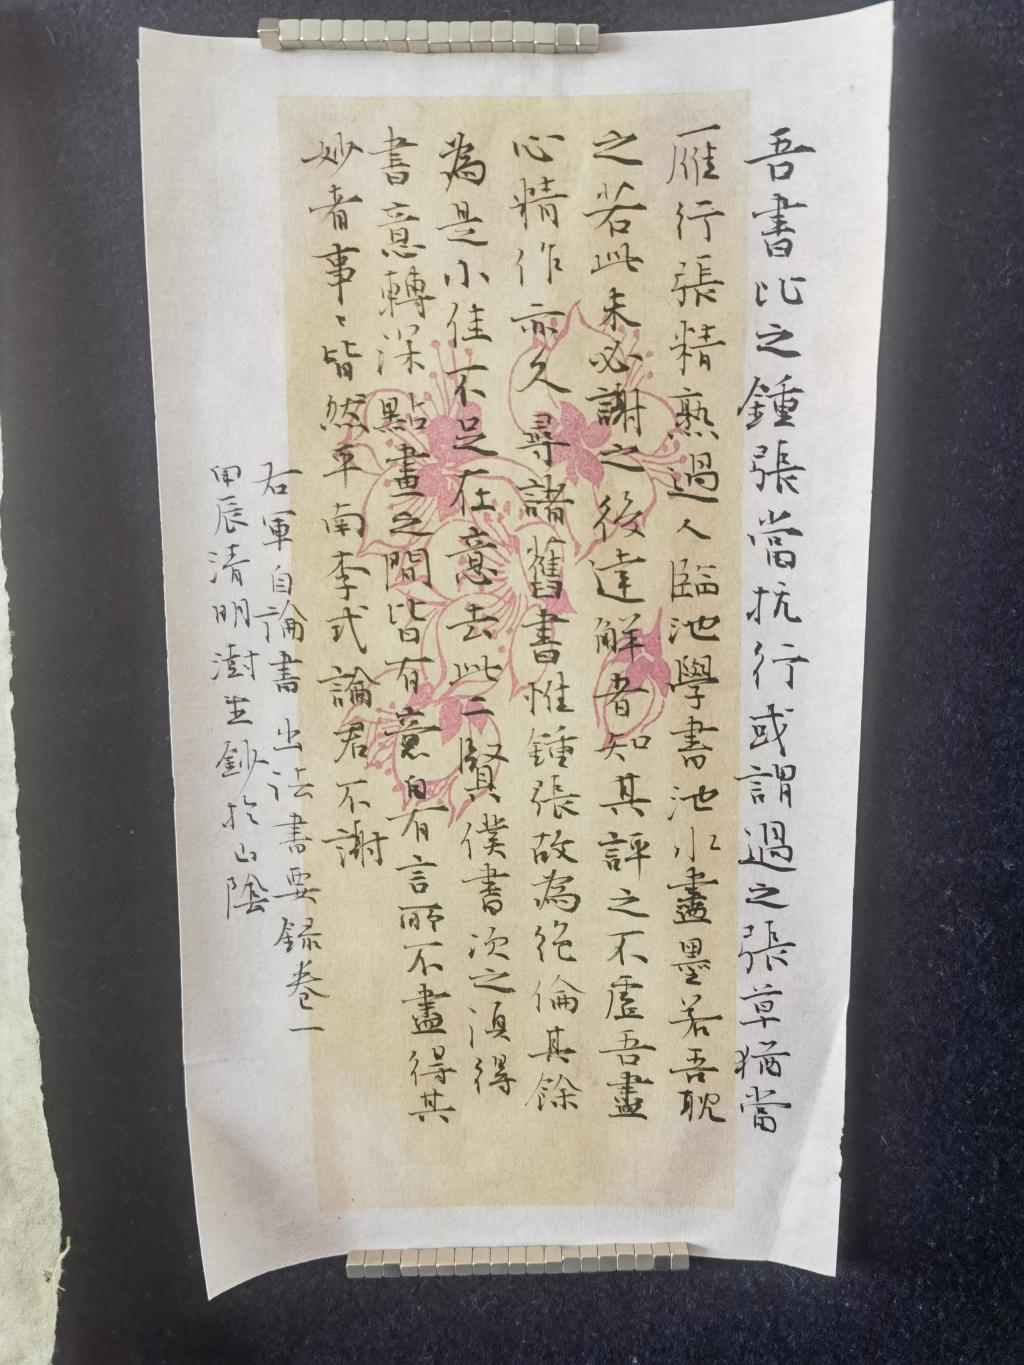 吾書比之鍾張當抗行或謂過之張草猶當
雁行張精熟過人臨池學書池水盡墨若吾耽
之若此未必謝之後達解者知其評之不虛吾盡
心精作亦久尋諸舊書惟鍾張故為絕倫其餘
為是小佳不足在意去此二賢僕書次之須得
書意轉深點畫之間皆有意自有言所不盡得其
妙者事〻皆然平南李式論君不謝
右軍自論書出法書要錄卷一
甲辰清明澍生鈔於山陰